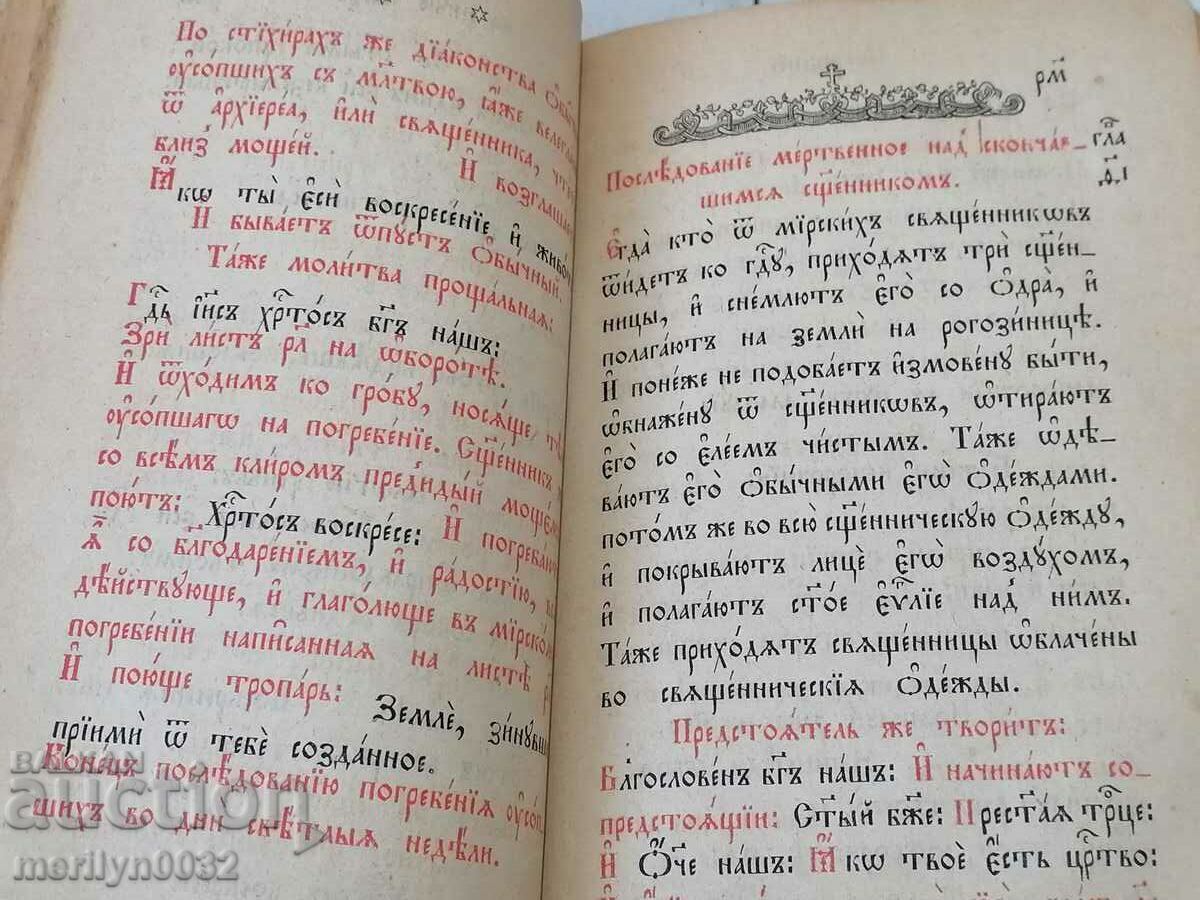 По стїхи́рахъ же дїа́конства ѡ҆бы́
ᲂу҆со́пшихъ съ мл҃твою, ꙗ҆́же велегла
ѿ а҆рхїере́а, и҆лѝ свѧще́нника, что
близ̾ моще́й. И҆ возглаша
Ꙗ҆́кѡ ты̀ є҆сѝ воскресе́нїе и҆ живо́
И҆ быва́етъ ѿпу́стъ ѻ҆бы́чный.
Та́же моли́тва проща́льная:
Гдⷭ҇ь і҆и҃съ хрⷭ҇то́съ бг҃ъ на́шъ:
Зрѝ ли́стъ рл҃ на ѡ҆боро́тѣ.
И҆ ѿхо́димъ ко гро́бу, носѧ́ще
ᲂу҆со́пшагѡ на погребе́нїе. Сщ҃е́нникъ
со всѣ́мъ кли́ромъ предъиды́й
пою́тъ: Хрⷭ҇то́съ воскре́се: И҆ погреба́ю
со бл҃годаре́нїемъ, и҆ ра́достїю,
дѣ́йствующе, и҆ глаго́люще въ мїрско́
погребе́нїи напи́санная на ли́стѣ
И҆ пою́ще тропа́рь: Землѐ, зину́вши
прїимѝ ѿ тебє̀ созда́нное.
Коне́цъ послѣ́дованїю погребе́нїя ᲂу҆со́п
шихъ во дни̑ свѣ́тлыя недѣ́ли.
рм҃
Послѣ́дованїе ме́ртвенное над̾ сконча́в-
шимся сщ҃е́нникомъ.
гла
д҃і
Є҆гда̀ кто̀ ѿ мїрски́хъ свѧще́нникѡвъ
ѿи́детъ ко гдⷭ҇у, прихо́дѧтъ трѝ сщ҃е́н-
ницы, и҆ сне́млютъ є҆го̀ со ѻ҆дра̀, и҆
полага́ютъ на землѝ на рогози́ницѣ.
И҆ поне́же не подоба́етъ и҆змове́ну бы́ти,
ѡ҆бнаже́ну ѿ сщ҃е́нникѡвъ, ѡ҆тира́ютъ
є҆го̀ со є҆ле́емъ чи́стымъ. Та́же ѡ҆дѣ-
ва́ютъ є҆го̀ ѻ҆бы́чными є҆гѡ̀ ѻ҆де́ждами.
пото́мъ же во всю̀ сщ҃е́нническую ѻ҆де́жду,
и҆ покрыва́ютъ лицѐ є҆гѡ̀ возду́хомъ,
и҆ полага́ютъ ст҃о́е є҆ѵⷢ҇лїе над̾ ни́мъ.
Та́же прихо́дѧтъ свѧще́нницы ѡ҆блаче́ны
во свѧще́нническїя ѻ҆де́жды.
Предстоя́тель же твори́тъ:
Бл҃гослове́нъ бг҃ъ на́шъ: И҆ начина́ютъ со
предстоя́щїи: Ст҃ы́й бж҃е: Прест҃а́я трⷪ҇це:
И҆ Ѻ҆́ч҃е на́шъ: Ꙗ҆́кѡ твоѐ є҆́сть црⷭ҇тво:
BALKAN
auction
merilyn0032